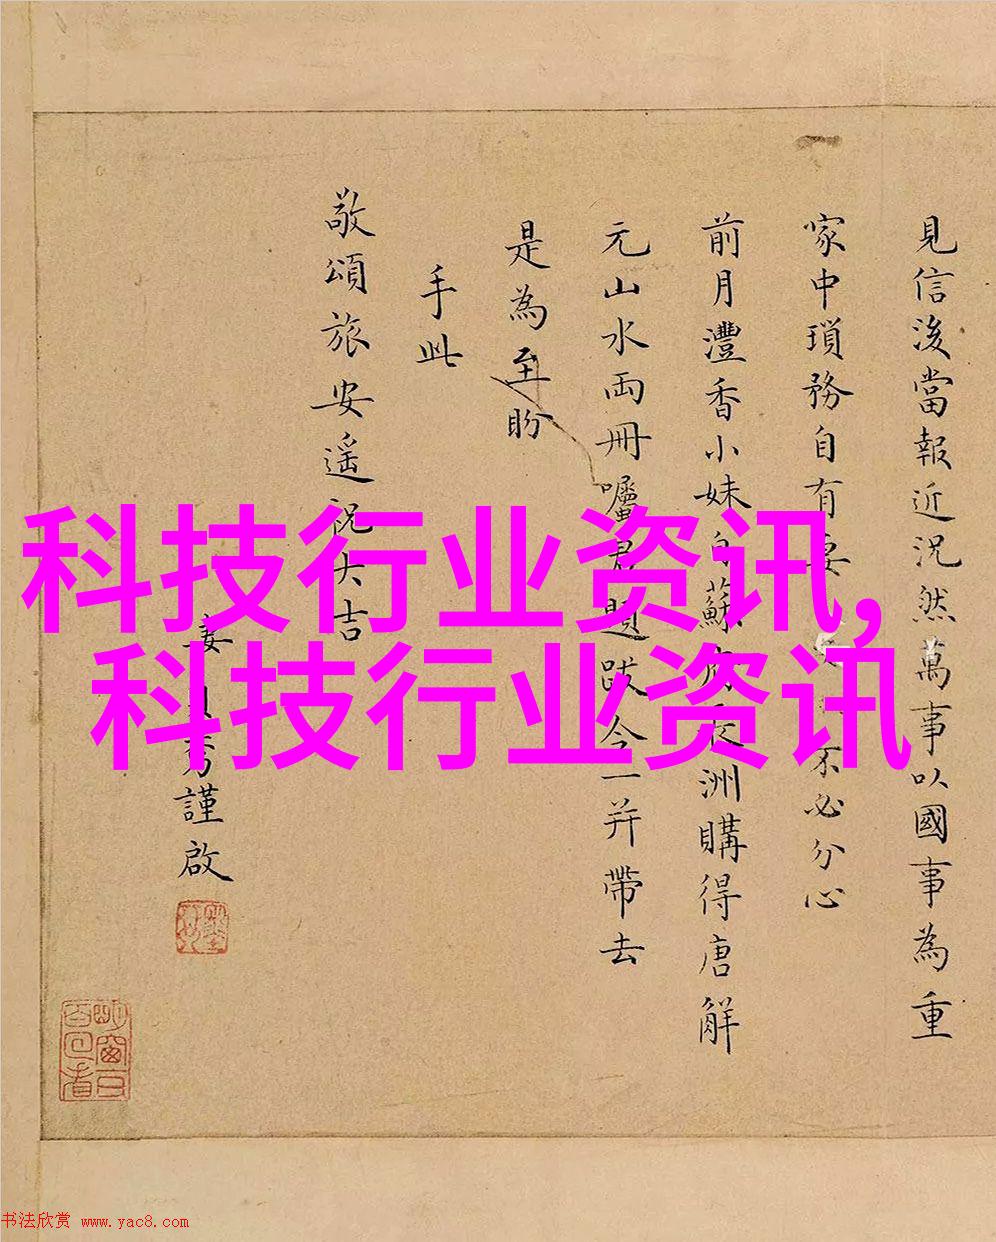 見信後當報近況然萬事以國事為重
家中瑣務自有妻 不必分心
前月灃香小妹自蘇 洲購得唐解
元山水兩冊囑君題跋今一并帶去
是為至盼
手此
敬頌旅安遥祝大吉
妻 秀謹啟
科技行业资讯,
科技行业资讯
书法欣赏 www.yac8.com